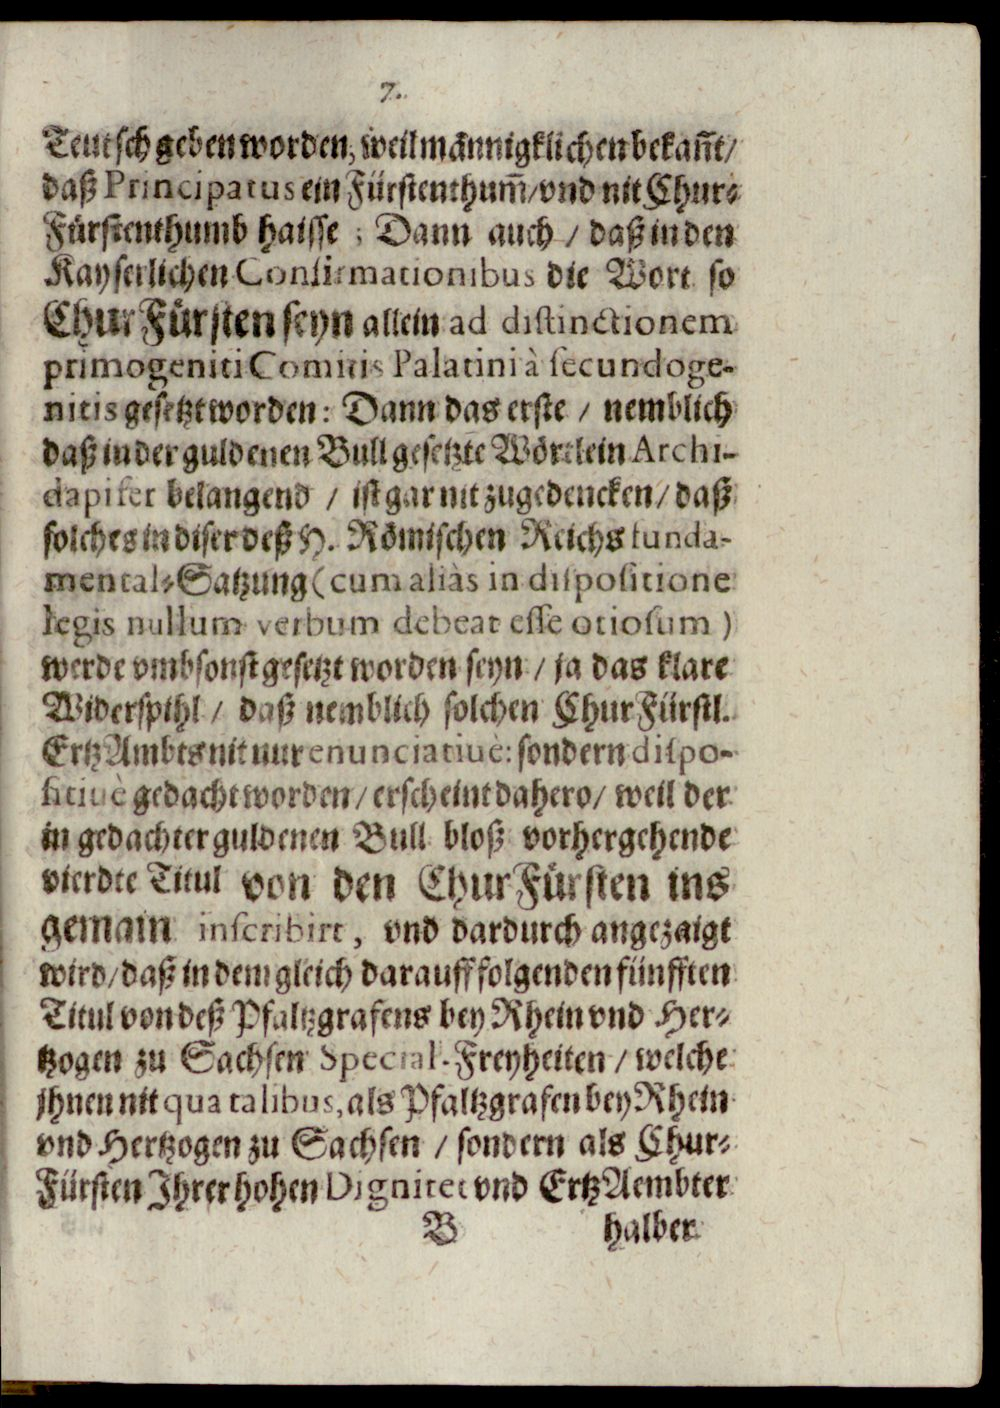 7.
Teutsch geben worden, weil männigklichen bekan̄t/
daß Principatus ein Fürstenthum̄/ vnd nit Chur-
Fürstenthumb haisse; Dann auch / daß in den
Kayserlichen Confirmationibus die Wort so
ChurFürsten seyn allein ad distinctionem
primogeniti Comitis Palatini à secundoge-
nitis gesetzt worden: Dann das erste / nemblich
daß in der guldenen Bull gesetzte Wörtlein Archi-
dapifer belangend / ist gar nit zugedencken/ daß
solches in diser deß H. Römischen Reichs funda-
mental-Satzung (cum aliàs in dispositione
legis nullum verbum debeat esse otiosum)
werde vmbsonst gesetzt worden seyn / ja das klare
Widerspihl / daß nemblich solchen ChurFürstl.
ErtzAmbts nit nur enunciativè: sondern dispo-
sitivè gedacht worden/ erscheint dahero/ weil der
in gedachter guldenen Bull bloß vorhergehende
vierdte Titul von den ChurFürsten ins
gemain inscribirt, vnd dardurch angezaigt
wird/ daß in dem gleich darauff folgenden fünfften
Titul von deß Pfaltzgrafens bey Rhein vnd Her-
tzogen zu Sachsen Special-Freyheiten / welche
jhnen nit qua talibus, als Pfaltzgrafen bey Rhein
vnd Hertzogen zu Sachsen / sondern als Chur-
Fürsten Jhrer hohen Dignitet vnd ErtzAembter
B halber